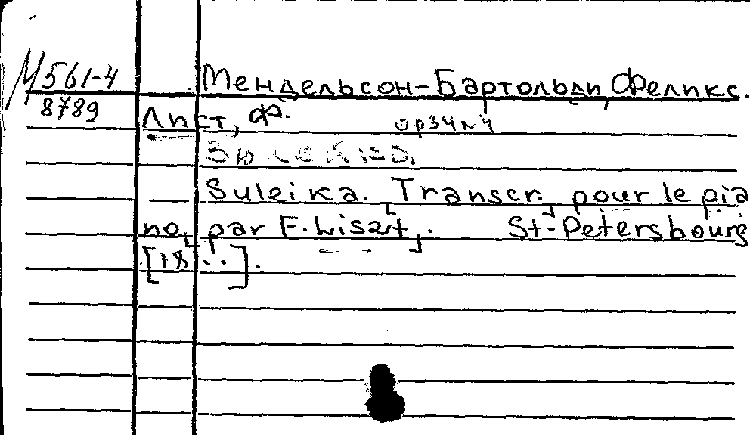 М561-4 Мендельсон-Бартольди, Феликс.
8789
Лист, Ф. ор34N4
Suleika. [Transcr.] pour le pia
no[par F. Liszt]. St-Petersbourg
[18..].